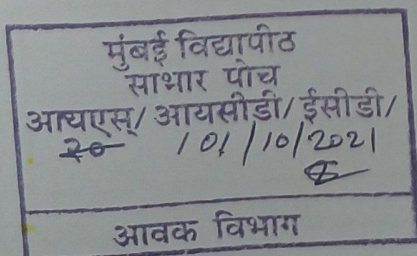 मुंबई विद्यापीठ
साभार पोच
आयएस्/ आयसीडी/ ईसीडी/
/01/10/2021
आवक विभाग